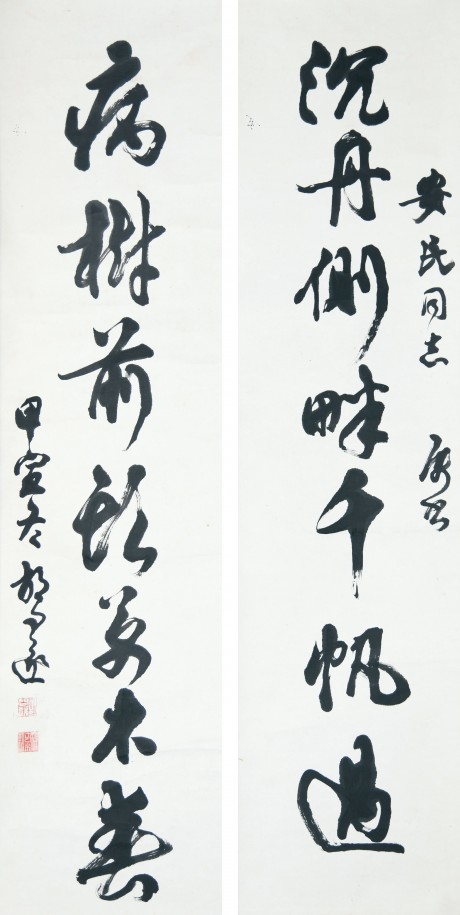 安民同志 属書
沉舟側畔千帆過
病樹前頭萬木春
甲寅冬 胡问遂